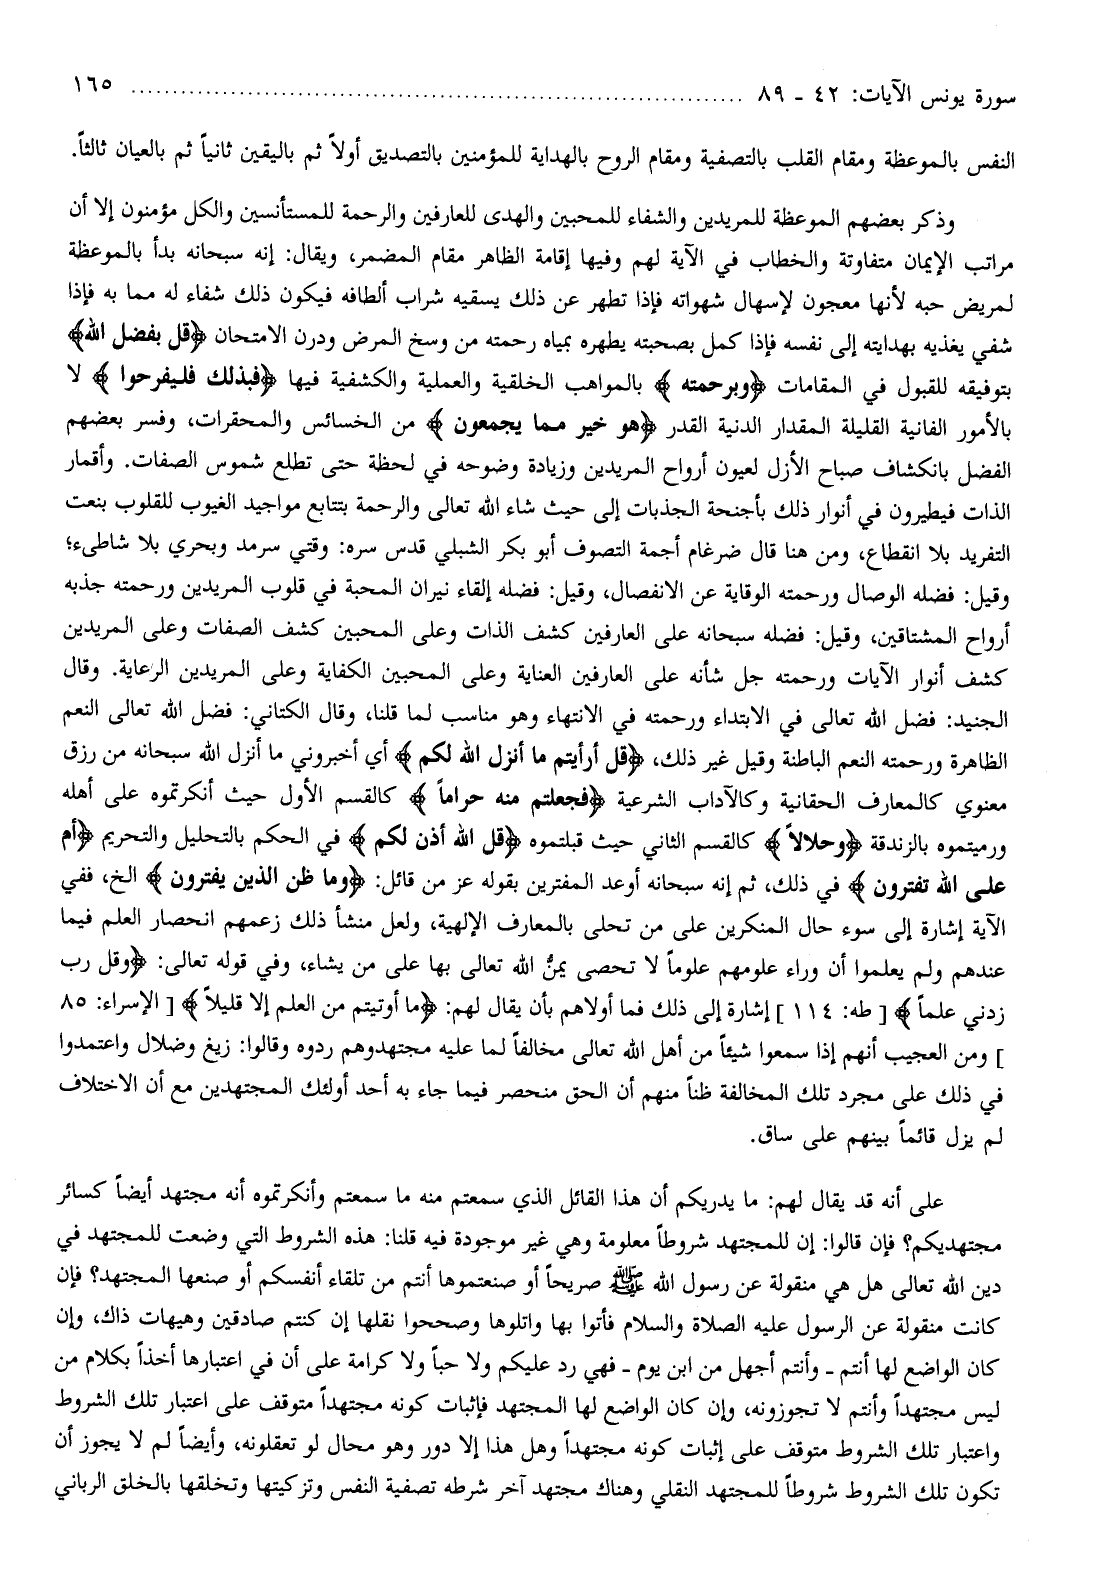 سورة يونس الآيات: ٤٢ ـ ٨٩ ........................................................................ ١٦٥
النفس بالموعظة ومقام القلب بالتصفية ومقام الروح بالهداية للمؤمنين بالتصديق أولاً ثم باليقين ثانياً ثم بالعيان ثالثاً.
وذكر بعضهم الموعظة للمريدين والشفاء للمحبين والهدى للعارفين والرحمة للمستأنسين والكل مؤمنون إلا أن
مراتب الإيمان متفاوتة والخطاب في الآية لهم وفيها إقامة الظاهر مقام المضمر، ويقال: إنه سبحانه بدأ بالموعظة
لمريض حبه لأنها معجون لإسهال شهواته فإذا تطهر عن ذلك يسقيه شراب ألطافه فيكون ذلك شفاء له مما به فإذا
شفي يغذيه بهدايته إلى نفسه فإذا كمل بصحبته يطهره بمياه رحمته من وسخ المرض ودرن الامتحان ﴿قل بفضل الله﴾
بتوفيقه للقبول في المقامات ﴿وبرحمته﴾ بالمواهب الخلقية والعملية والكشفية فيها ﴿فبذلك فليفرحوا﴾ لا
بالأمور الفانية القليلة المقدار الدنية القدر ﴿هو خير مما يجمعون﴾ من الخسائس والمحقرات، وفسر بعضهم
الفضل بانكشاف صباح الأزل لعيون أرواح المريدين وزيادة وضوحه في لحظة حتى تطلع شموس الصفات. وأقمار
الذات فيطيرون في أنوار ذلك بأجنحة الجذبات إلى حيث شاء الله تعالى والرحمة بتتابع مواجيد الغيوب للقلوب بنعت
التفريد بلا انقطاع، ومن هنا قال ضرغام أجمة التصوف أبو بكر الشبلي قدس سره: وقتي سرمد وبحري بلا شاطىء؛
وقيل: فضله الوصال ورحمته الوقاية عن الانفصال، وقيل: فضله إلقاء نيران المحبة في قلوب المريدين ورحمته جذبه
أرواح المشتاقين، وقيل: فضله سبحانه على العارفين كشف الذات وعلى المحبين كشف الصفات وعلى المريدين
كشف أنوار الآيات ورحمته جل شأنه على العارفين العناية وعلى المحبين الكفاية وعلى المريدين الرعاية. وقال
الجنيد: فضل الله تعالى في الابتداء ورحمته في الانتهاء وهو مناسب لما قلنا، وقال الكتاني: فضل الله تعالى النعم
الظاهرة ورحمته النعم الباطنة وقيل غير ذلك، ﴿قل أرأيتم ما أنزل الله لكم﴾ أي أخبروني ما أنزل الله سبحانه من رزق
معنوي كالمعارف الحقانية وكالآداب الشرعية ﴿فجعلتم منه حراماً﴾ كالقسم الأول حيث أنكرتموه على أهله
ورميتموه بالزندقة ﴿وحلالاً﴾ كالقسم الثاني حيث قبلتموه ﴿قل الله أذن لكم﴾ في الحكم بالتحليل والتحريم ﴿أم
على الله تفترون﴾ في ذلك، ثم إنه سبحانه أوعد المفترين بقوله عز من قائل: ﴿وما ظن الذين يفترون﴾ الخ، ففي
الآية إشارة إلى سوء حال المنكرين على من تحلى بالمعارف الإلهية، ولعل منشأ ذلك زعمهم انحصار العلم فيما
عندهم ولم يعلموا أن وراء علومهم علوماً لا تحصى يمنُّ الله تعالى بها على من يشاء، وفي قوله تعالى: ﴿وقل رب
زدني علماً﴾ [ طه: ١١٤ ] إشارة إلى ذلك فما أولاهم بأن يقال لهم: ﴿ما أوتيتم من العلم إلا قليلاً﴾ [ الإسراء: ٨٥
] ومن العجيب أنهم إذا سمعوا شيئاً من أهل الله تعالى مخالفاً لما عليه مجتهدوهم ردوه وقالوا: زيغ وضلال واعتمدوا
في ذلك على مجرد تلك المخالفة ظناً منهم أن الحق منحصر فيما جاء به أحد أولئك المجتهدين مع أن الاختلاف
لم يزل قائماً بينهم على ساق.
على أنه قد يقال لهم: ما يدريكم أن هذا القائل الذي سمعتم منه ما سمعتم وأنكرتموه أنه مجتهد أيضاً كسائر
مجتهديكم؟ فإن قالوا: إن للمجتهد شروطاً معلومة وهي غير موجودة فيه قلنا: هذه الشروط التي وضعت للمجتهد في
دين الله تعالى هل هي منقولة عن رسول الله ﷺ صريحاً أو صنعتموها أنتم من تلقاء أنفسكم أو صنعها المجتهد؟ فإن
كانت منقولة عن الرسول عليه الصلاة والسلام فأتوا بها واتلوها وصححوا نقلها إن كنتم صادقين وهيهات ذاك، وإن
كان الواضع لها أنتم ـ وأنتم أجهل من ابن يوم ـ فهي رد عليكم ولا حباً ولا كرامة على أن في اعتبارها أخذاً بكلام من
ليس مجتهداً وأنتم لا تجوزونه، وإن كان الواضع لها المجتهد فإثبات كونه مجتهداً متوقف على اعتبار تلك الشروط
واعتبار تلك الشروط متوقف على إثبات كونه مجتهداً وهل هذا إلا دور وهو محال لو تعقلونه، وأيضاً لم لا يجوز أن
تكون تلك الشروط شروطاً للمجتهد النقلي وهناك مجتهد آخر شرطه تصفية النفس وتزكيتها وتخلقها بالخلق الرباني